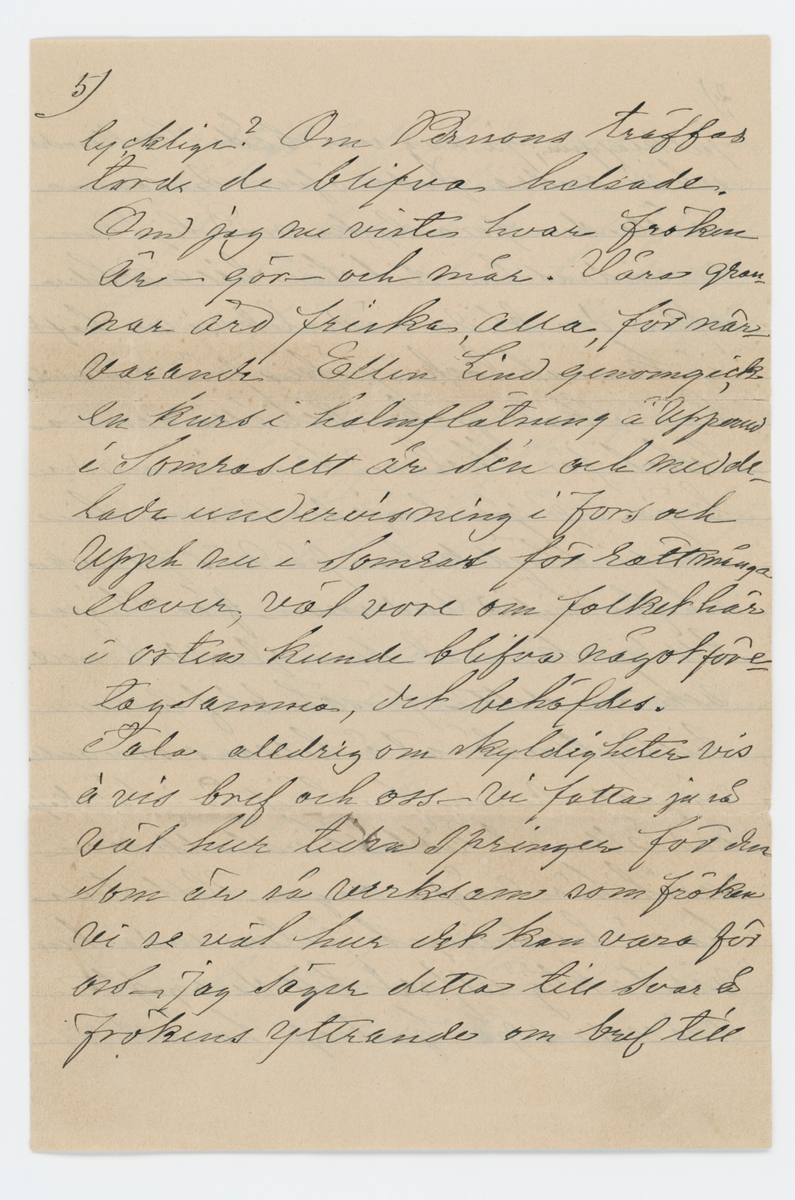 5)
lycklige? Om Perssons träffas
torde de blifva helsade.
Om jag nu visste hvar fröken
är – gör – och mår. Våra gran-
nar äro friska, alla, för när-
varande Ellen Lind genomgick
en kurs i halmflätning å
i Somras ett år sen och medde-
lade undervisning i Fors och
Upph nu i Somras för rätt många
elever, väl vore om folket här
i orten kunde blifva något före-
tagsamma, det behöfdes.
Tala aldrig om skyldigheter vis
à vis bref och oss – vi fatta ju så
väl hur tiden springer för den
som är så verksam som fröken
vi se väl hur det kan vara för
oss – jag säger detta till svar å
frökens yttrande om bref till